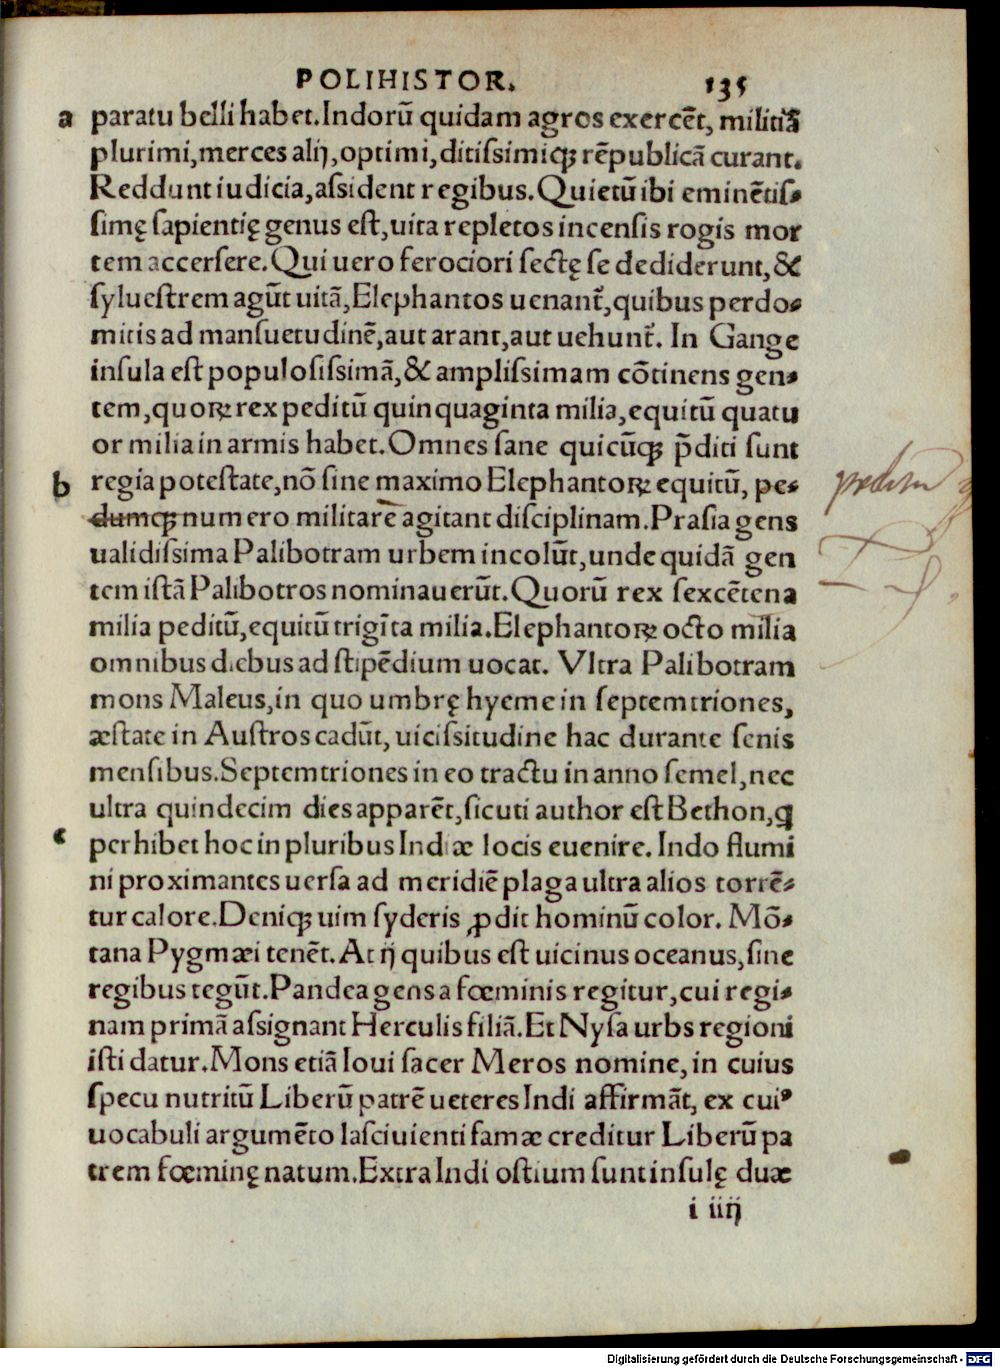 POLIHISTOR. 135
a paratu belli habet. Indorū quidam agros exercēt, militiā
plurimi, merces alij, optimi, ditiſsimiqꝫ rēpublicā curant.
Reddunt iudicia, aſsident regibus. Quietū ibi eminētiſ-
ſimę ſapientię genus eſt, uita repletos incenſis rogis mor
tem accerſere. Qui uero ferociori ſectę ſe dediderunt, &
ſylueſtrem agūt uitā, Elephantos uenant᷑, quibus perdo-
mitis ad manſuetudinē, aut arant, aut uehunt᷑. In Gange
inſula eſt populoſiſsimā, & ampliſsimam cōtinens gen-
tem, quoꝝ rex peditū quinquaginta milia, equitū quatu
or milia in armis habet. Omnes ſane quicūqꝫ p̄diti ſunt
b regia poteſtate, nō ſine maximo Elephantoꝝ equitū, pe-
dumqꝫ numero militarē agitant diſciplinam. Praſia gens
ualidiſsima Palibotram urbem incolūt, unde quidā gen
tem iſtā Palibotros nominauerūt. Quorū rex ſexcētena
milia peditū, equitū trigīta milia. Elephantoꝝ octo milia
omnibus diebus ad ſtipēdium uocat. Vltra Palibotram
mons Maleus, in quo umbrę hyeme in ſeptemtriones,
æſtate in Auſtros cadūt, uiciſsitudine hac durante ſenis
menſibus. Septemtriones in eo tractu in anno ſemel, nec
ultra quindecim dies apparēt, ſicuti author eſt Bethon, ꝗ
c perhibet hoc in pluribus Indiæ locis euenire. Indo flumi
ni proximantes uerſa ad meridiē plaga ultra alios torrē-
tur calore. Deniqꝫ uim ſyderis ꝓdit hominū color. Mō-
tana Pygmæi tenēt. At ij quibus eſt uicinus oceanus, ſine
regibus tegūt. Pandea gens a fœminis regitur, cui regi-
nam primā aſsignant Herculis filiā. Et Nyſa urbs regioni
iſti datur. Mons etiā Ioui ſacer Meros nomine, in cuius
ſpecu nutritū Liberū patrē ueteres Indi affirmāt, ex cuiꝰ
uocabuli argumēto laſciuienti famæ creditur Liberū pa
trem fœminę natum. Extra Indi oſtium ſunt inſulę duæ
i iiij
Digitalisierung gefördert durch die Deutsche Forschungsgemeinschaft - DFG